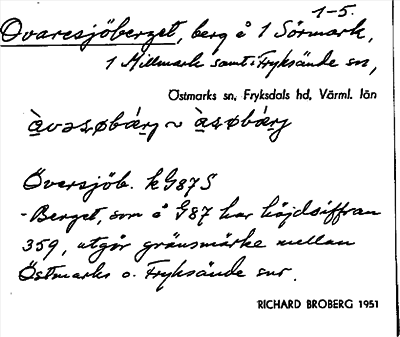 1-5.
Ovaresjöberget, berg å 1 Sörmark,
1 Millmark samt i Fryksände sn,
Östmarks sn, Fryksdals hd, Värml. län
Översjöb. kG87S
- Berget, som å G87 har höjdsiffran
359, utgör gränsmärke mellan
Östmarks o. Fryksände snr.
RICHARD BROBERG 1951